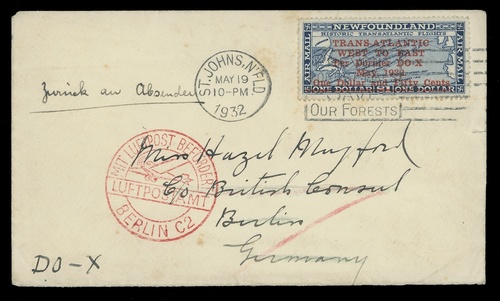 NEWFOUNDLAND
HISTORIC TRANSATLANTIC FLIGHTS
AIR MAIL
AIR MAIL
TRANS-ATLANTIC
WEST TO EAST
Per Dornier DO-X
May, 1932.
One Dollar and Fifty Cents
ONE DOLLAR $1 ONE DOLLAR
ST. JOHNS, N'FL'D.
MAY 19
10-PM
1932
OUR FORESTS
Zurück an Absender
MIT LUFTPOST BEFÖRDERT
LUFTPOSTAMT
BERLIN C2
Miss Hazel
C/o British Consul
Berlin
Germany
DO-X